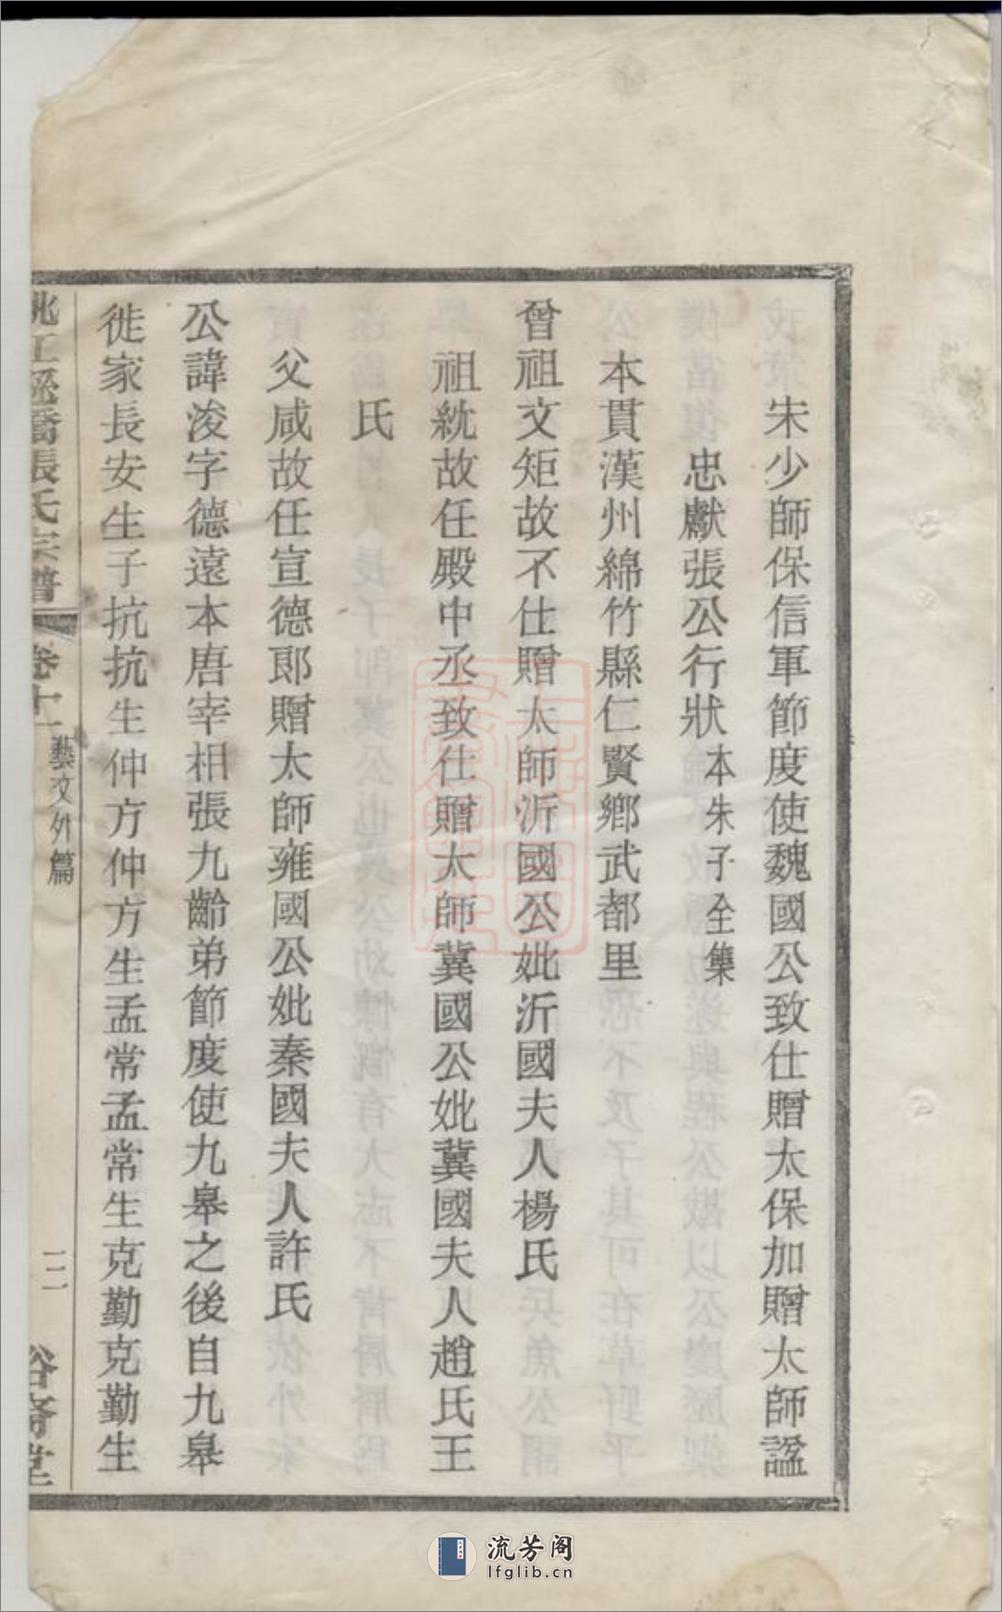 宋少師保信軍節度使魏國公致仕贈太保加贈太師諡
忠獻張公行狀本朱子全集
本貫漢州綿竹縣仁賢鄉武都里
曾祖文矩故不仕贈太師沂國公妣沂國夫人楊氏
祖紞故任殿中丞致仕贈太師冀國公妣冀國夫人趙氏王
氏
父咸故任宣德郎贈太師雍國公妣秦國夫人許氏
公諱浚字德遠本唐宰相張九齡弟節度使九皋之後自九皋
徙家長安生子抗抗生仲方仲方生孟常孟常生克勤克勤生
張氏宗譜
卷十一
藝文外篇
三
裕齋堂
流芳阁
lfglib.cn